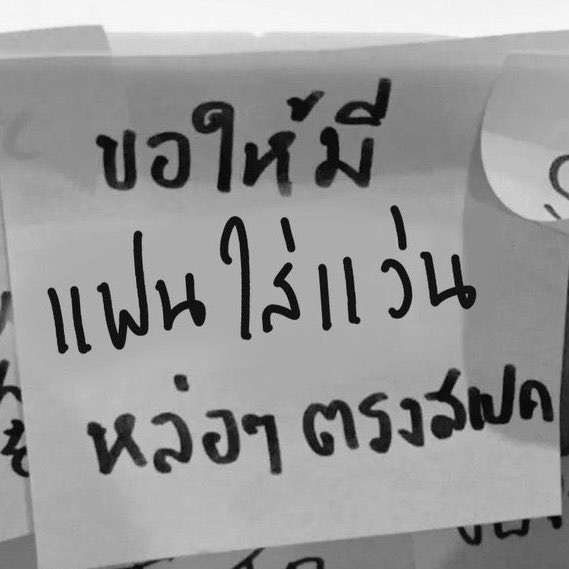 ขอให้มี
แฟนใส่แว่น
หล่อๆ ตรงสเปค